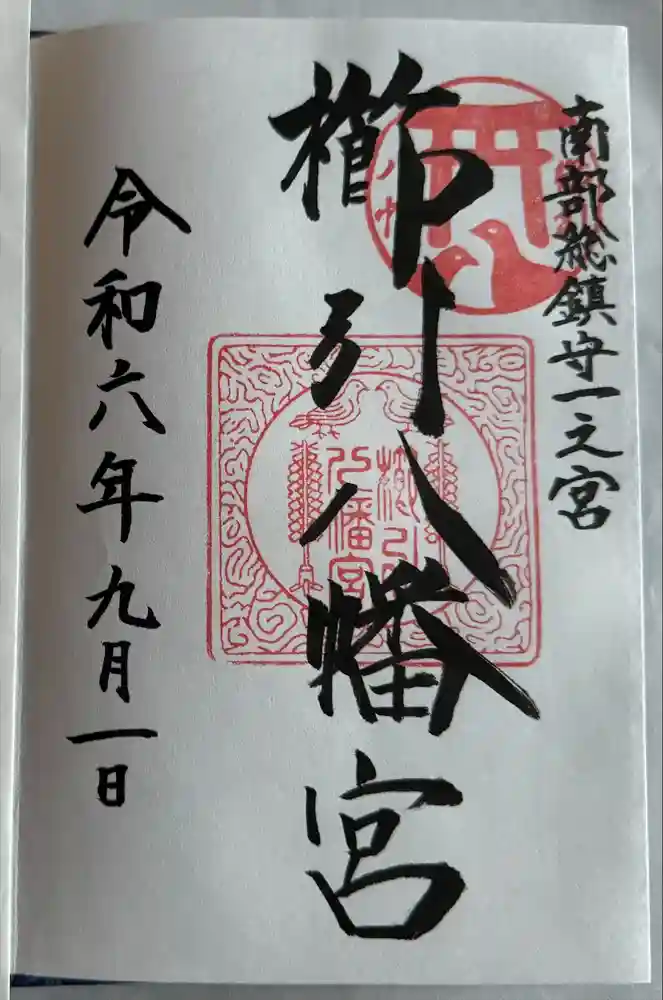 南部総鎮守一之宮
櫛引八幡宮
櫛引
八幡宮
令和六年九月一日